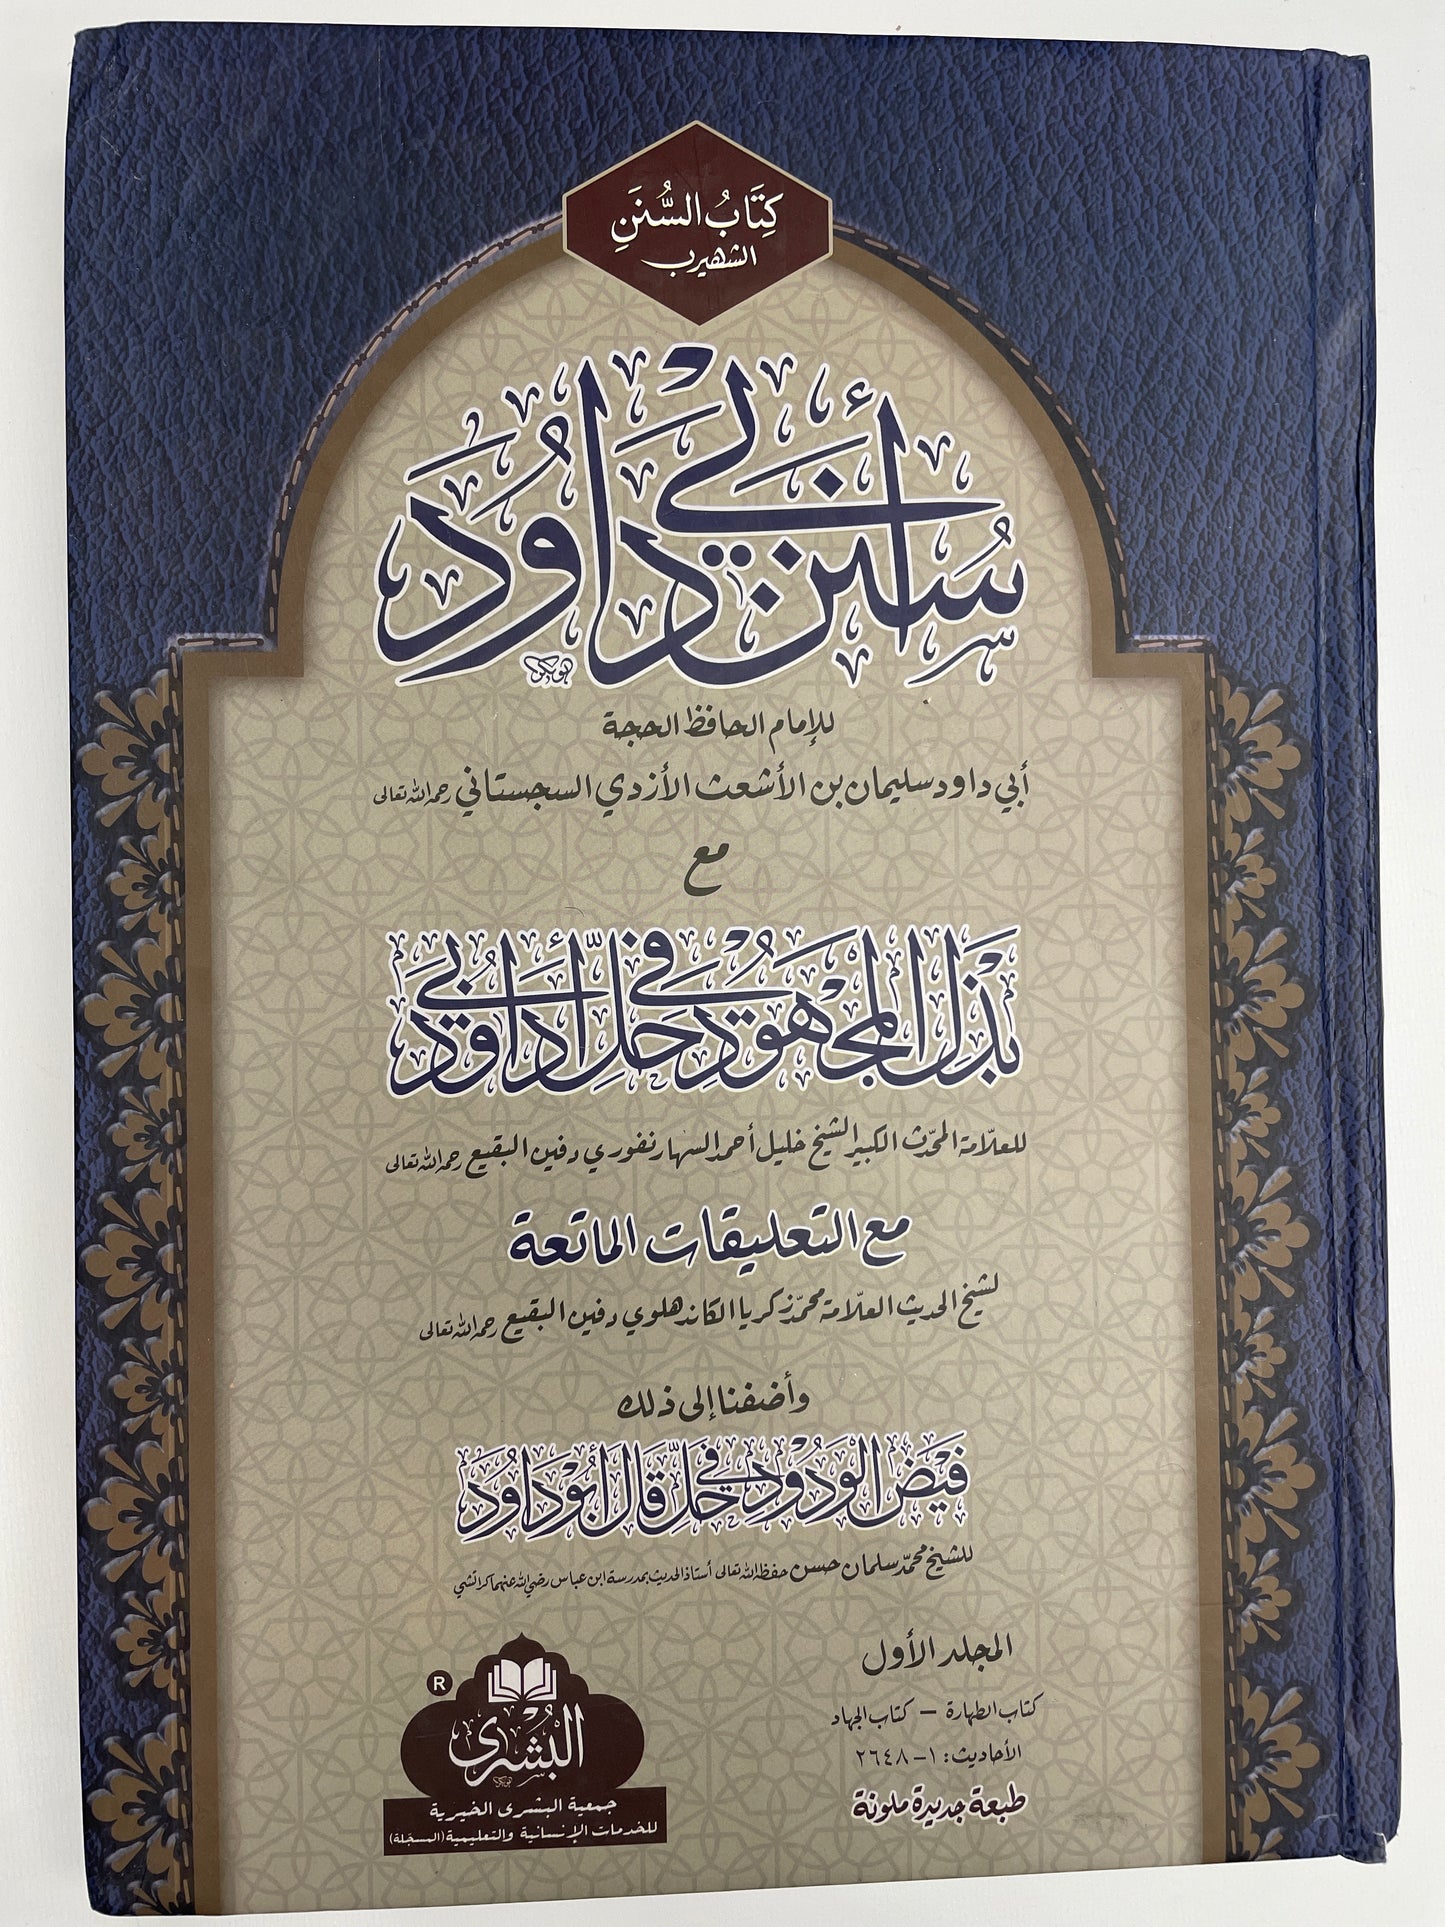 كِتَابُ السُّنَنِ
الشهيرب
سُنَن أَبِي دَاوُدَ
للإمام الحافظ الحجة
أبي داود سليمان بن الأشعث الأزدي السجستاني رحمه الله تعالى
مع
بَذْلُ الْمَجْهُوْدِ فِي حَلِّ أَبِي دَاوُدَ
للعلّامة المحدّث الكبير الشيخ خليل أحمد السهارنفوري دفين البقيع رحمه الله تعالى
مع التعليقات الماتعة
لشيخ الحديث العلّامة محمّد زكريا الكاندهلوي دفين البقيع رحمه الله تعالى
وأضفنا إلى ذلك
فَيْضُ الْوَدُوْدِ فِي حَلِّ قَالَ أَبُوْ دَاوُدَ
للشيخ محمّد سلمان حسن حفظه الله تعالى أستاذ الحديث بمدرسة ابن عباس رضي الله عنهما كراتشي
المجلد الأول
كتاب الطهارة – كتاب الجهاد
الأحاديث: ١–٢٦٤٨
طبعة جديدة ملونة
R
البُشْرى
جمعية البشرى الخيرية
للخدمات الإنسانية والتعليمية (المسجّلة)